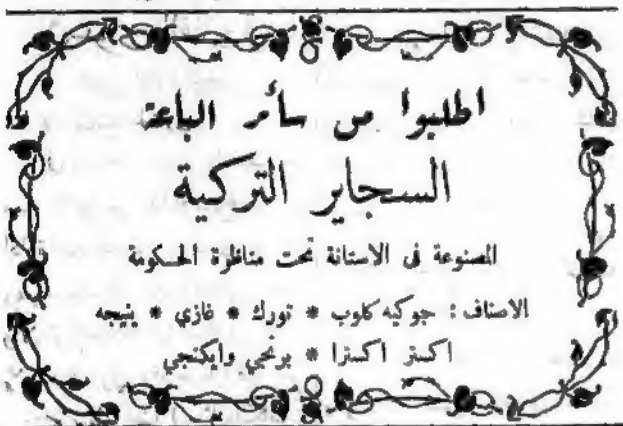 اطلبوا من سائر الباعة
السجاير التركية
المصنوعة فى الاستانة تحت مناظرة الحكومة
الاصناف : جوكيه كلوب * تورك * غازي * ينيجه
اكستر اكسترا * برنجي وايكنجي